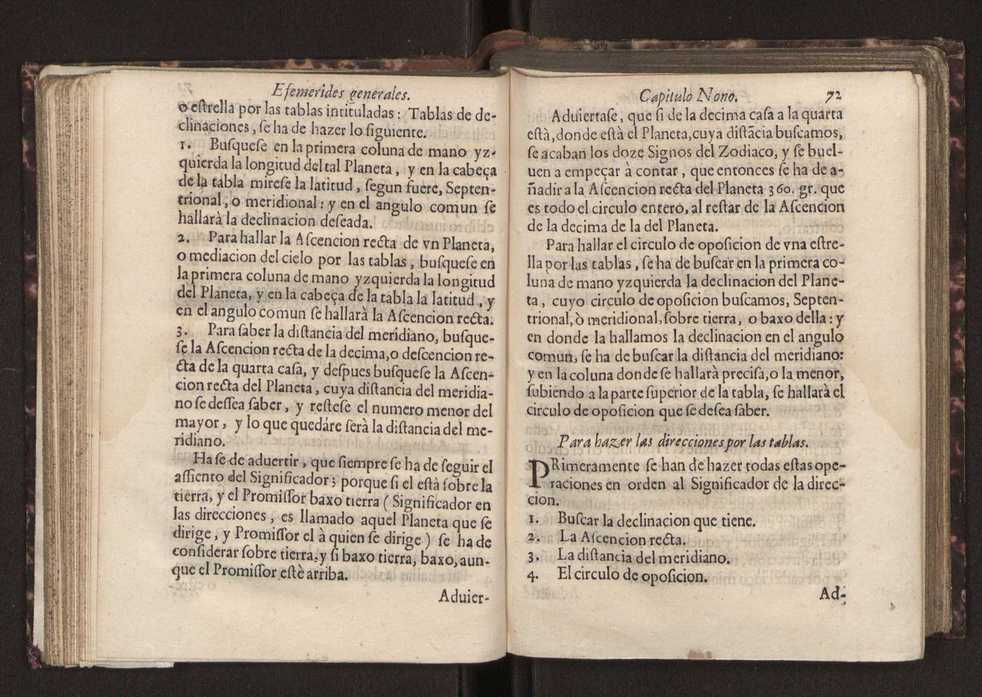 Efemerides generales.
o eſtrella por las tablas intituladas: Tablas de de-
clinaciones, ſe ha de hazer lo ſiguiente.
1. Buſqueſe en la primera coluna de mano yz-
quierda la longitud del tal Planeta, y en la cabeça
de la tabla mireſe la latitud, ſegun fuere, Septen-
trional, o meridional: y en el angulo comun ſe
hallarà la declinacion deſeada.
2. Para hallar la Aſcencion recta de vn Planeta,
o mediacion del cielo por las tablas, buſqueſe en
la primera coluna de mano yzquierda la longitud
del Planeta, y en la cabeça de la tabla la latitud, y
en el angulo comun ſe hallarà la Aſcencion recta.
3. Para ſaber la diſtancia del meridiano, buſque-
ſe la Aſcencion recta de la decima, o deſcencion re-
cta de la quarta caſa, y deſpues buſqueſe la Aſcen-
cion recta del Planeta, cuya diſtancia del meridia-
no ſe deſſea ſaber, y reſteſe el numero menor del
mayor, y lo que quedáre ſerà la diſtancia del me-
ridiano.
Ha ſe de aduertir, que ſiempre ſe ha de ſeguir el
aſſiento del Significador; porque ſi el eſtà ſobre la
tierra, y el Promiſſor baxo tierra (Significador en
las direcciones, es llamado aquel Planeta que ſe
dirige, y Promiſſor el à quien ſe dirige) ſe ha de
conſiderar ſobre tierra, y ſi baxo tierra, baxo, aun-
que el Promiſſor eſtè arriba.
Aduier-
Capitulo Nono. 72
Aduiertaſe, que ſi de la decima caſa a la quarta
eſtà, donde eſtà el Planeta, cuya diſtãcia buſcamos,
ſe acaban los doze Signos del Zodiaco, y ſe buel-
uen a empeçar à contar, que entonces ſe ha de a-
ñadir a la Aſcencion recta del Planeta 360. gr. que
es todo el circulo entero, al reſtar de la Aſcencion
de la decima de la del Planeta.
Para hallar el circulo de opoſicion de vna eſtre-
lla por las tablas, ſe ha de buſcar en la primera co-
luna de mano yzquierda la declinacion del Plane-
ta, cuyo circulo de opoſicion buſcamos, Septen-
trional, ò meridional, ſobre tierra, o baxo della: y
en donde la hallamos la declinacion en el angulo
comun, ſe ha de buſcar la diſtancia del meridiano:
y en la coluna donde ſe hallarà preciſa, o la menor,
ſubiendo a la parte ſuperior de la tabla, ſe hallarà el
circulo de opoſicion que ſe deſea ſaber.
Para hazer las direcciones por las tablas.
PRimeramente ſe han de hazer todas eſtas ope-
raciones en orden al Significador de la direc-
cion.
1. Buſcar la declinacion que tiene.
2. La Aſcencion recta.
3. La diſtancia del meridiano.
4. El circulo de opoſicion.
Ad-